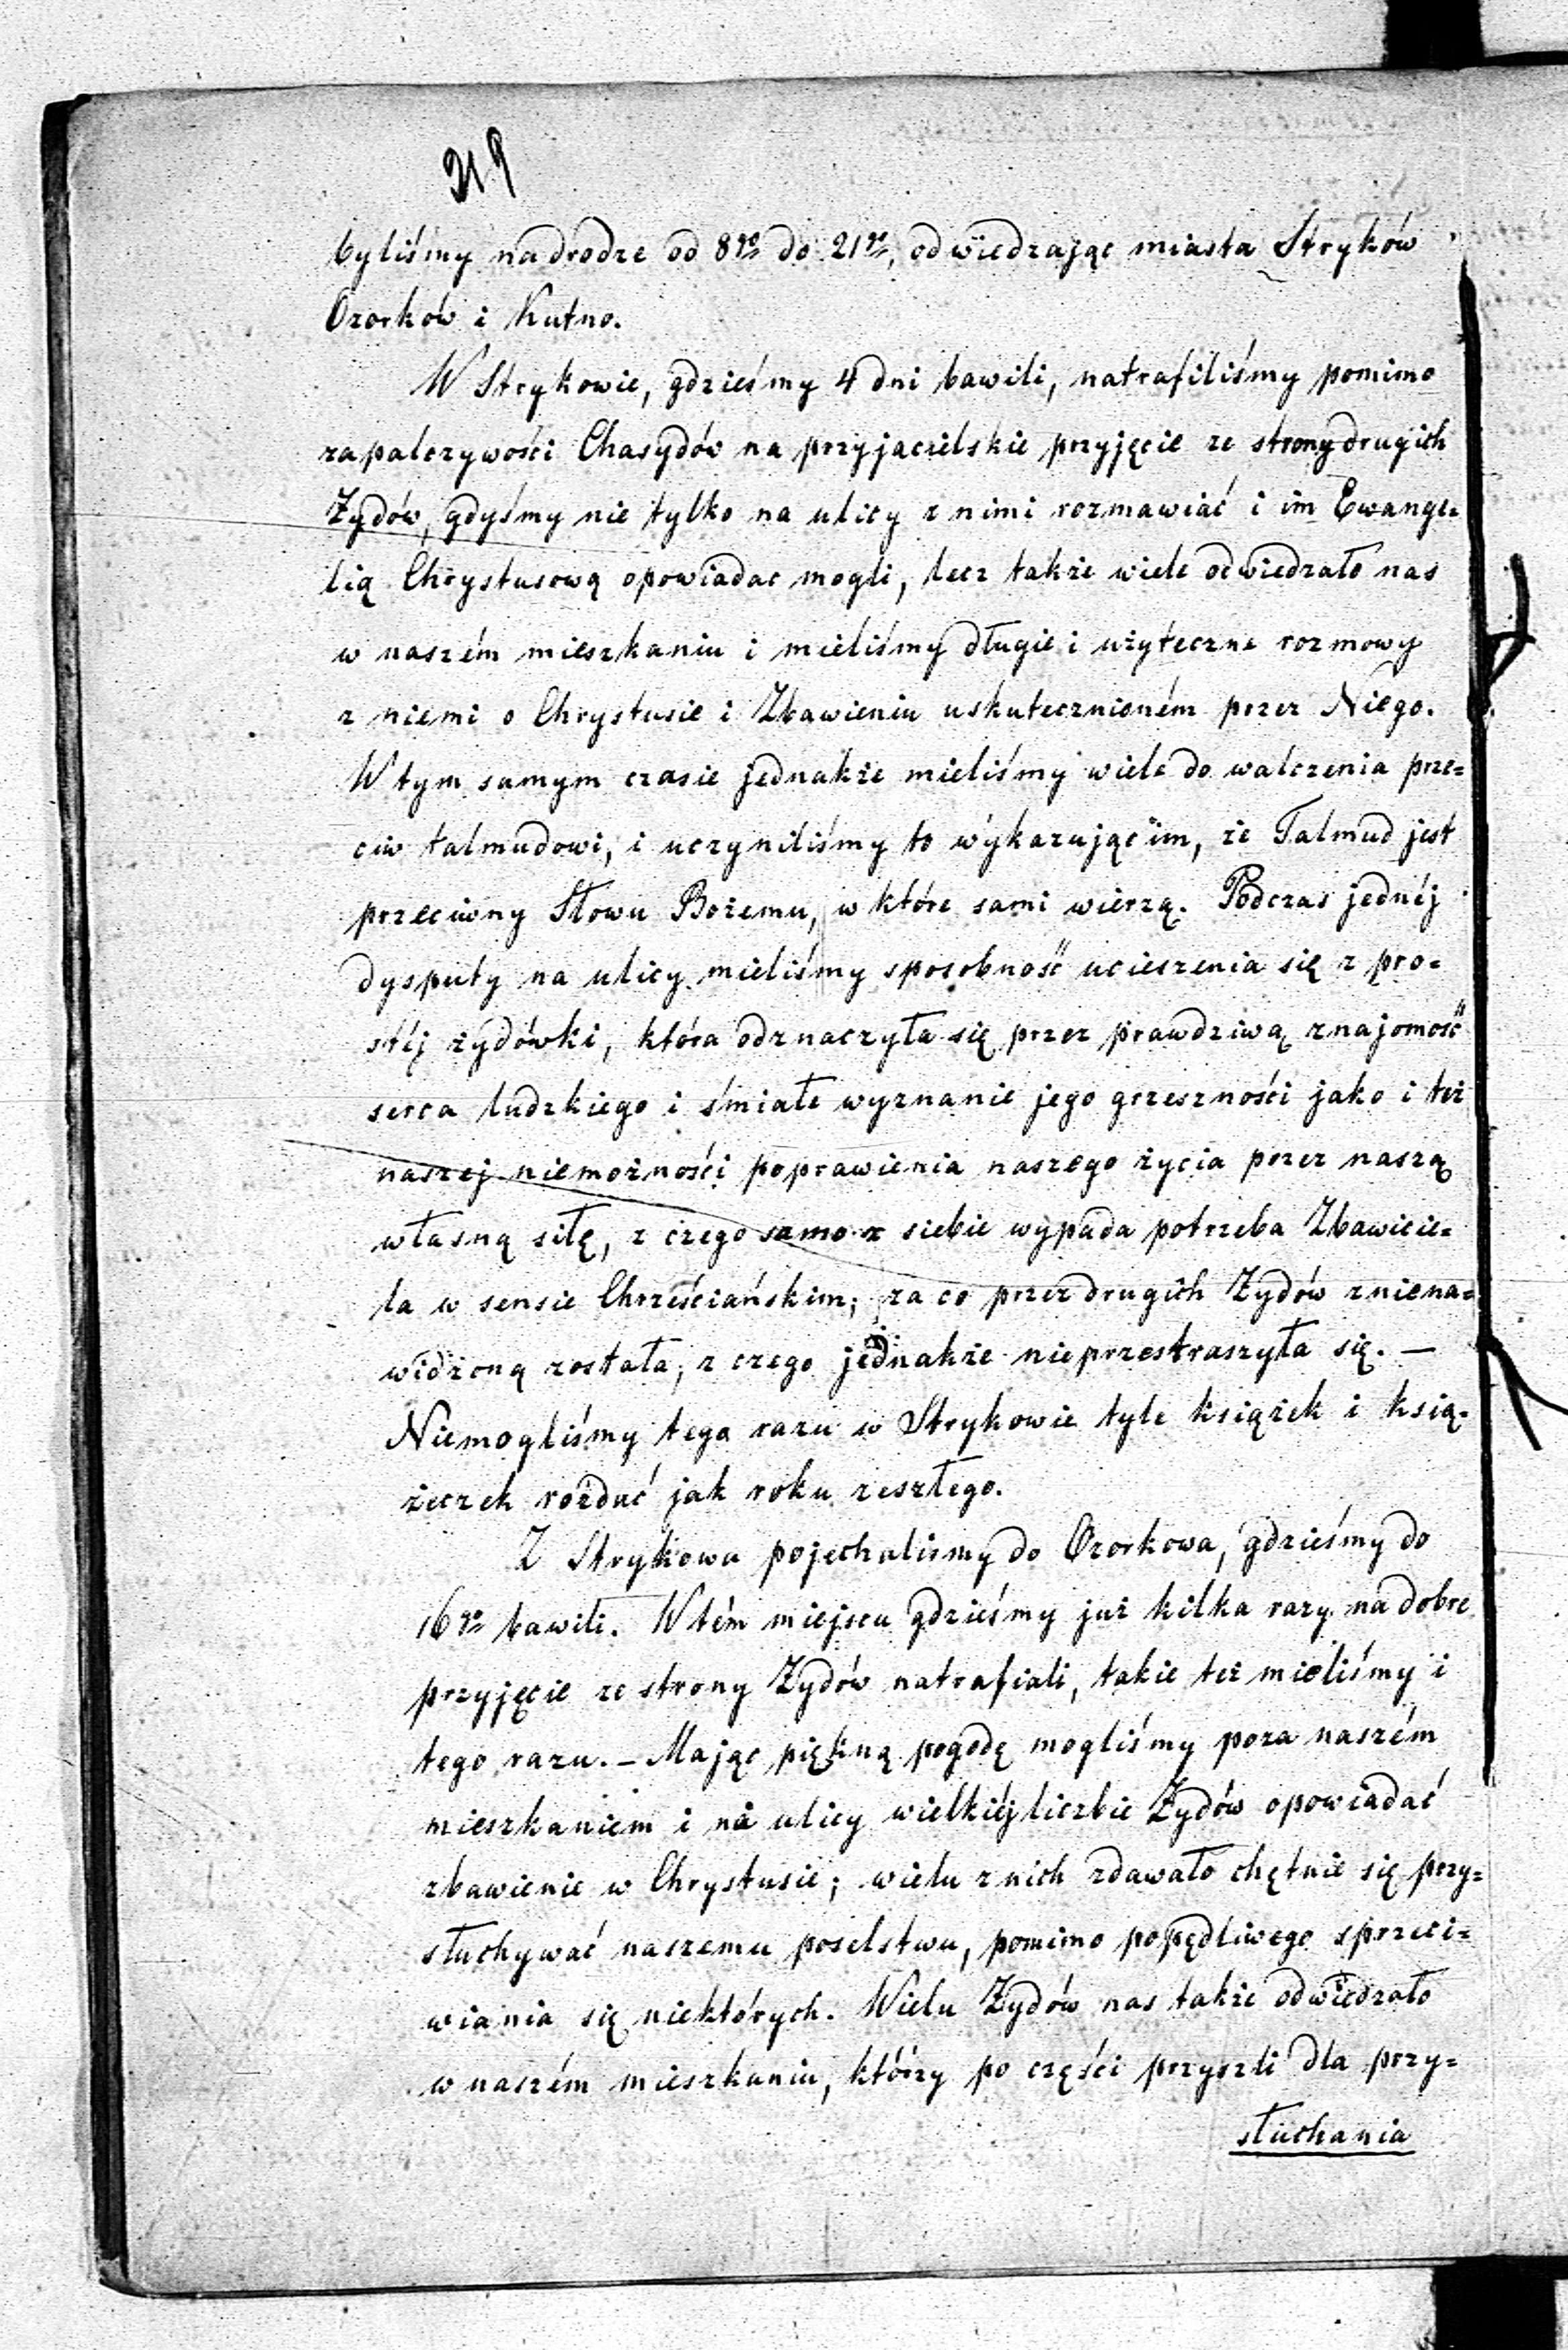 219
byliśmy na drodze od 8go do 21go, odwiedzając miasta Stryków
Ozorków i Kutno.
W Strykowie, gdzieśmy 4 dni bawili, natrafiliśmy pomimo
zapalczywości Chasydów na przyjacielskie przyjęcie ze strony drugich
Żydów, gdyśmy nie tylko na ulicy z nimi rozmawiać i im Ewange=
lią Chrystusową opowiadac mogli, lecz także wiele odwiedzało nas
w naszém mieszkaniu i mieliśmy długie i użyteczne rozmowy
z niemi o Chrystusie i Zbawieniu uskutecznioném przez Niego.
W tym samym czasie jednakże mieliśmy wiele do walczenia prze=
ciw talmudowi, i uczyniliśmy to wykazując im, że Talmud jest
przeciwny Słowu Bożemu, w które sami wierzą. Podczas jednéj
dysputy na ulicy mieliśmy sposobność ucieszenia się z pro=
stéj żydówki, która odznaczyła się przez prawdziwą znajomość
serca ludzkiego i śmiałe wyznanie jego grzeszności jako i też
naszej niemożności poprawienia naszego życia przez naszą
własną siłę, z czego samo z siebie wypada potrzeba Zbawicie=
la w sensie Chrześciańskim; za co przez drugich Żydów zniena=
widzoną została, z czego jednakże nieprzestraszyła się. —
Niemogliśmy tego razu w Strykowie tyle książek i ksią=
żeczek rozdać jak roku zeszłego.
Z Strykowa pojechalismy do Ozorkowa, gdzieśmy do
16go bawili. W tém miejscu gdzieśmy już kilka razy na dobre
przyjęcie ze strony Żydów natrafiali, takie też mieliśmy i
tego razu. — Mając piękną pogodę mogliśmy poza naszém
mieszkaniem i na ulicy wielkiéj liczbie Żydów opowiadać
zbawienie w Chrystusie; wielu z nich zdawało chętnie się przy=
słuchywać naszemu poselstwu, pomimo popędliwego sprzeci=
wiania się niektórych. Wielu Żydów nas także odwiedzało
w naszém mieszkaniu, którzy po części przyszli dla przy=
słuchania